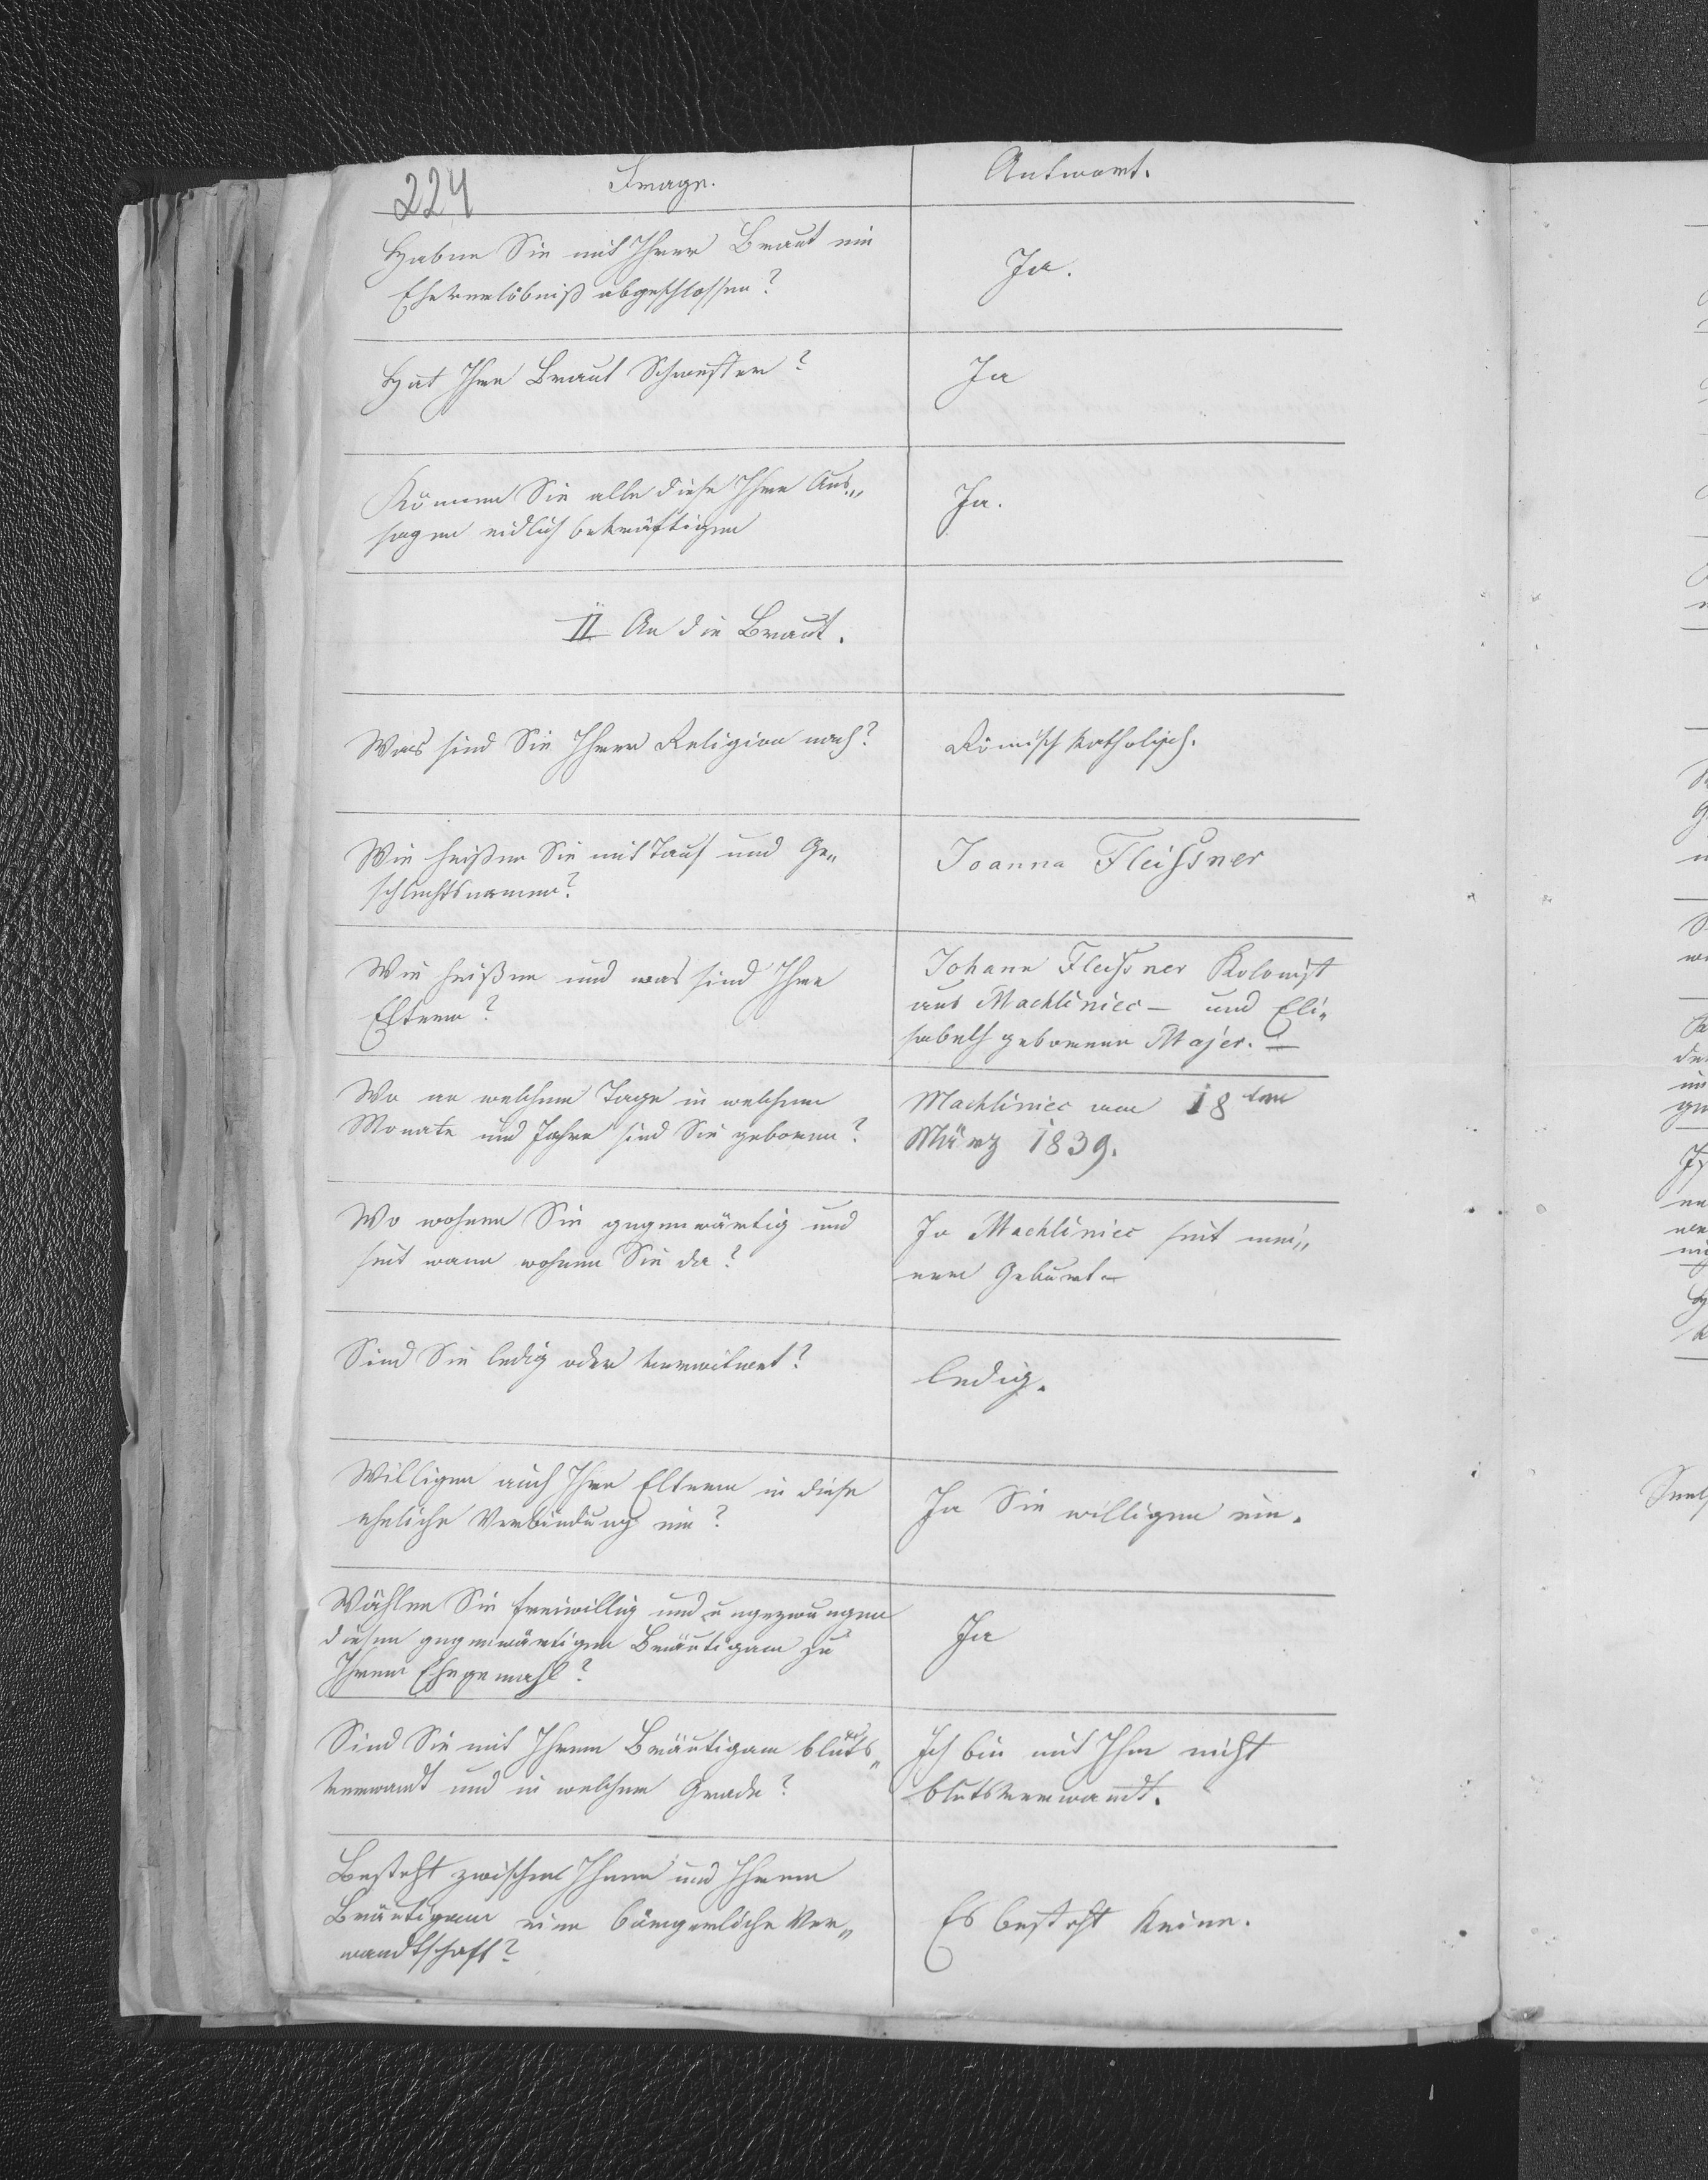 224
Frage.
Antwort.
Haben Sie mit Ihrer Braut ein
Eheverlöbniß abgeschlossen?
Ja.
Hat Ihre Braut Schwester?
Ja
Können Sie alle diese Ihre Aus„
sagen eidlich bekräftigen
Ja.
II An die Braut.
Was sind Sie Ihrer Religion nach?
Römisch katholisch.
Wie heißen Sie mit Tauf und Ge„
schlechtsnamen?
Joanna Fleißsner
Wie heißen und was sind Ihre
Eltern?
Johann Fleißsner Kolonist
aus Machliniec – und Eli„
sabeth geborene Majer. –
Wo an welchem Tage in welchem
Monate und Jahre sind Sie geboren?
Machliniec am 18ten
März 1839.
Wo wohnen Sie gegenwärtig und
seit wann wohnen Sie da?
In Machliniec seit mei„
ner Geburt –
Sind Sie ledig oder verwitwet?
ledig.
Willigen auch Ihre Eltern in diese
eheliche Verbindung ein?
Ja Sie willigen ein.
Wählen Sie freiwillig und ungezwungen
diesen gegenwärtigen Bräutigam zu
Ihrem Ehegemahl?
Ja
Sind Sie mit Ihrem Bräutigam bluts„
verwandt und in welchem Grade?
Ich bin mit Ihm nicht
blutsverwandt.
Besteht zwischen Ihnen und Ihrem
Bräutigam eine bürgerliche Ver„
wandtschaft?
Es besteht keine.